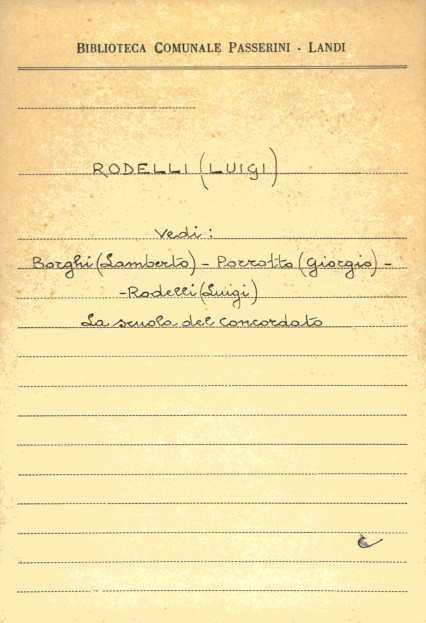 BIBLIOTECA COMUNALE PASSERINI - LANDI
RODELLI (LUIGI)
Vedi:
Borghi (Lamberto) - Porrotto (Giorgio) -
- Rodelli (Luigi)
La scuola del concordato